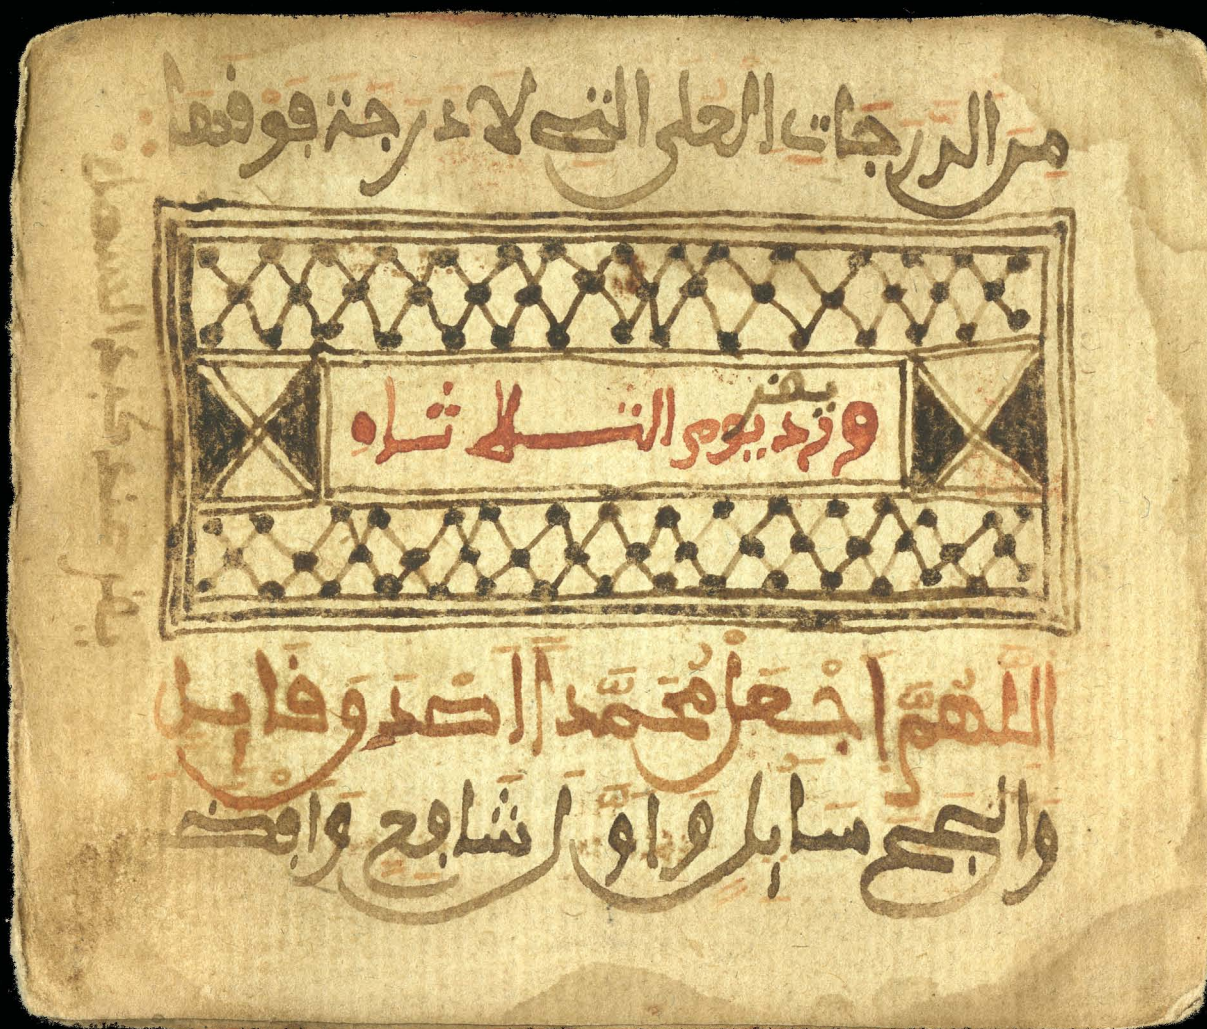 من الدرجات العلى التي لا درجة فوقها
يقر
ورد يوم الثلاثاء
اللهم اجعل محمدا اصدق قايل
وانجح سايل واول شافع وافضل